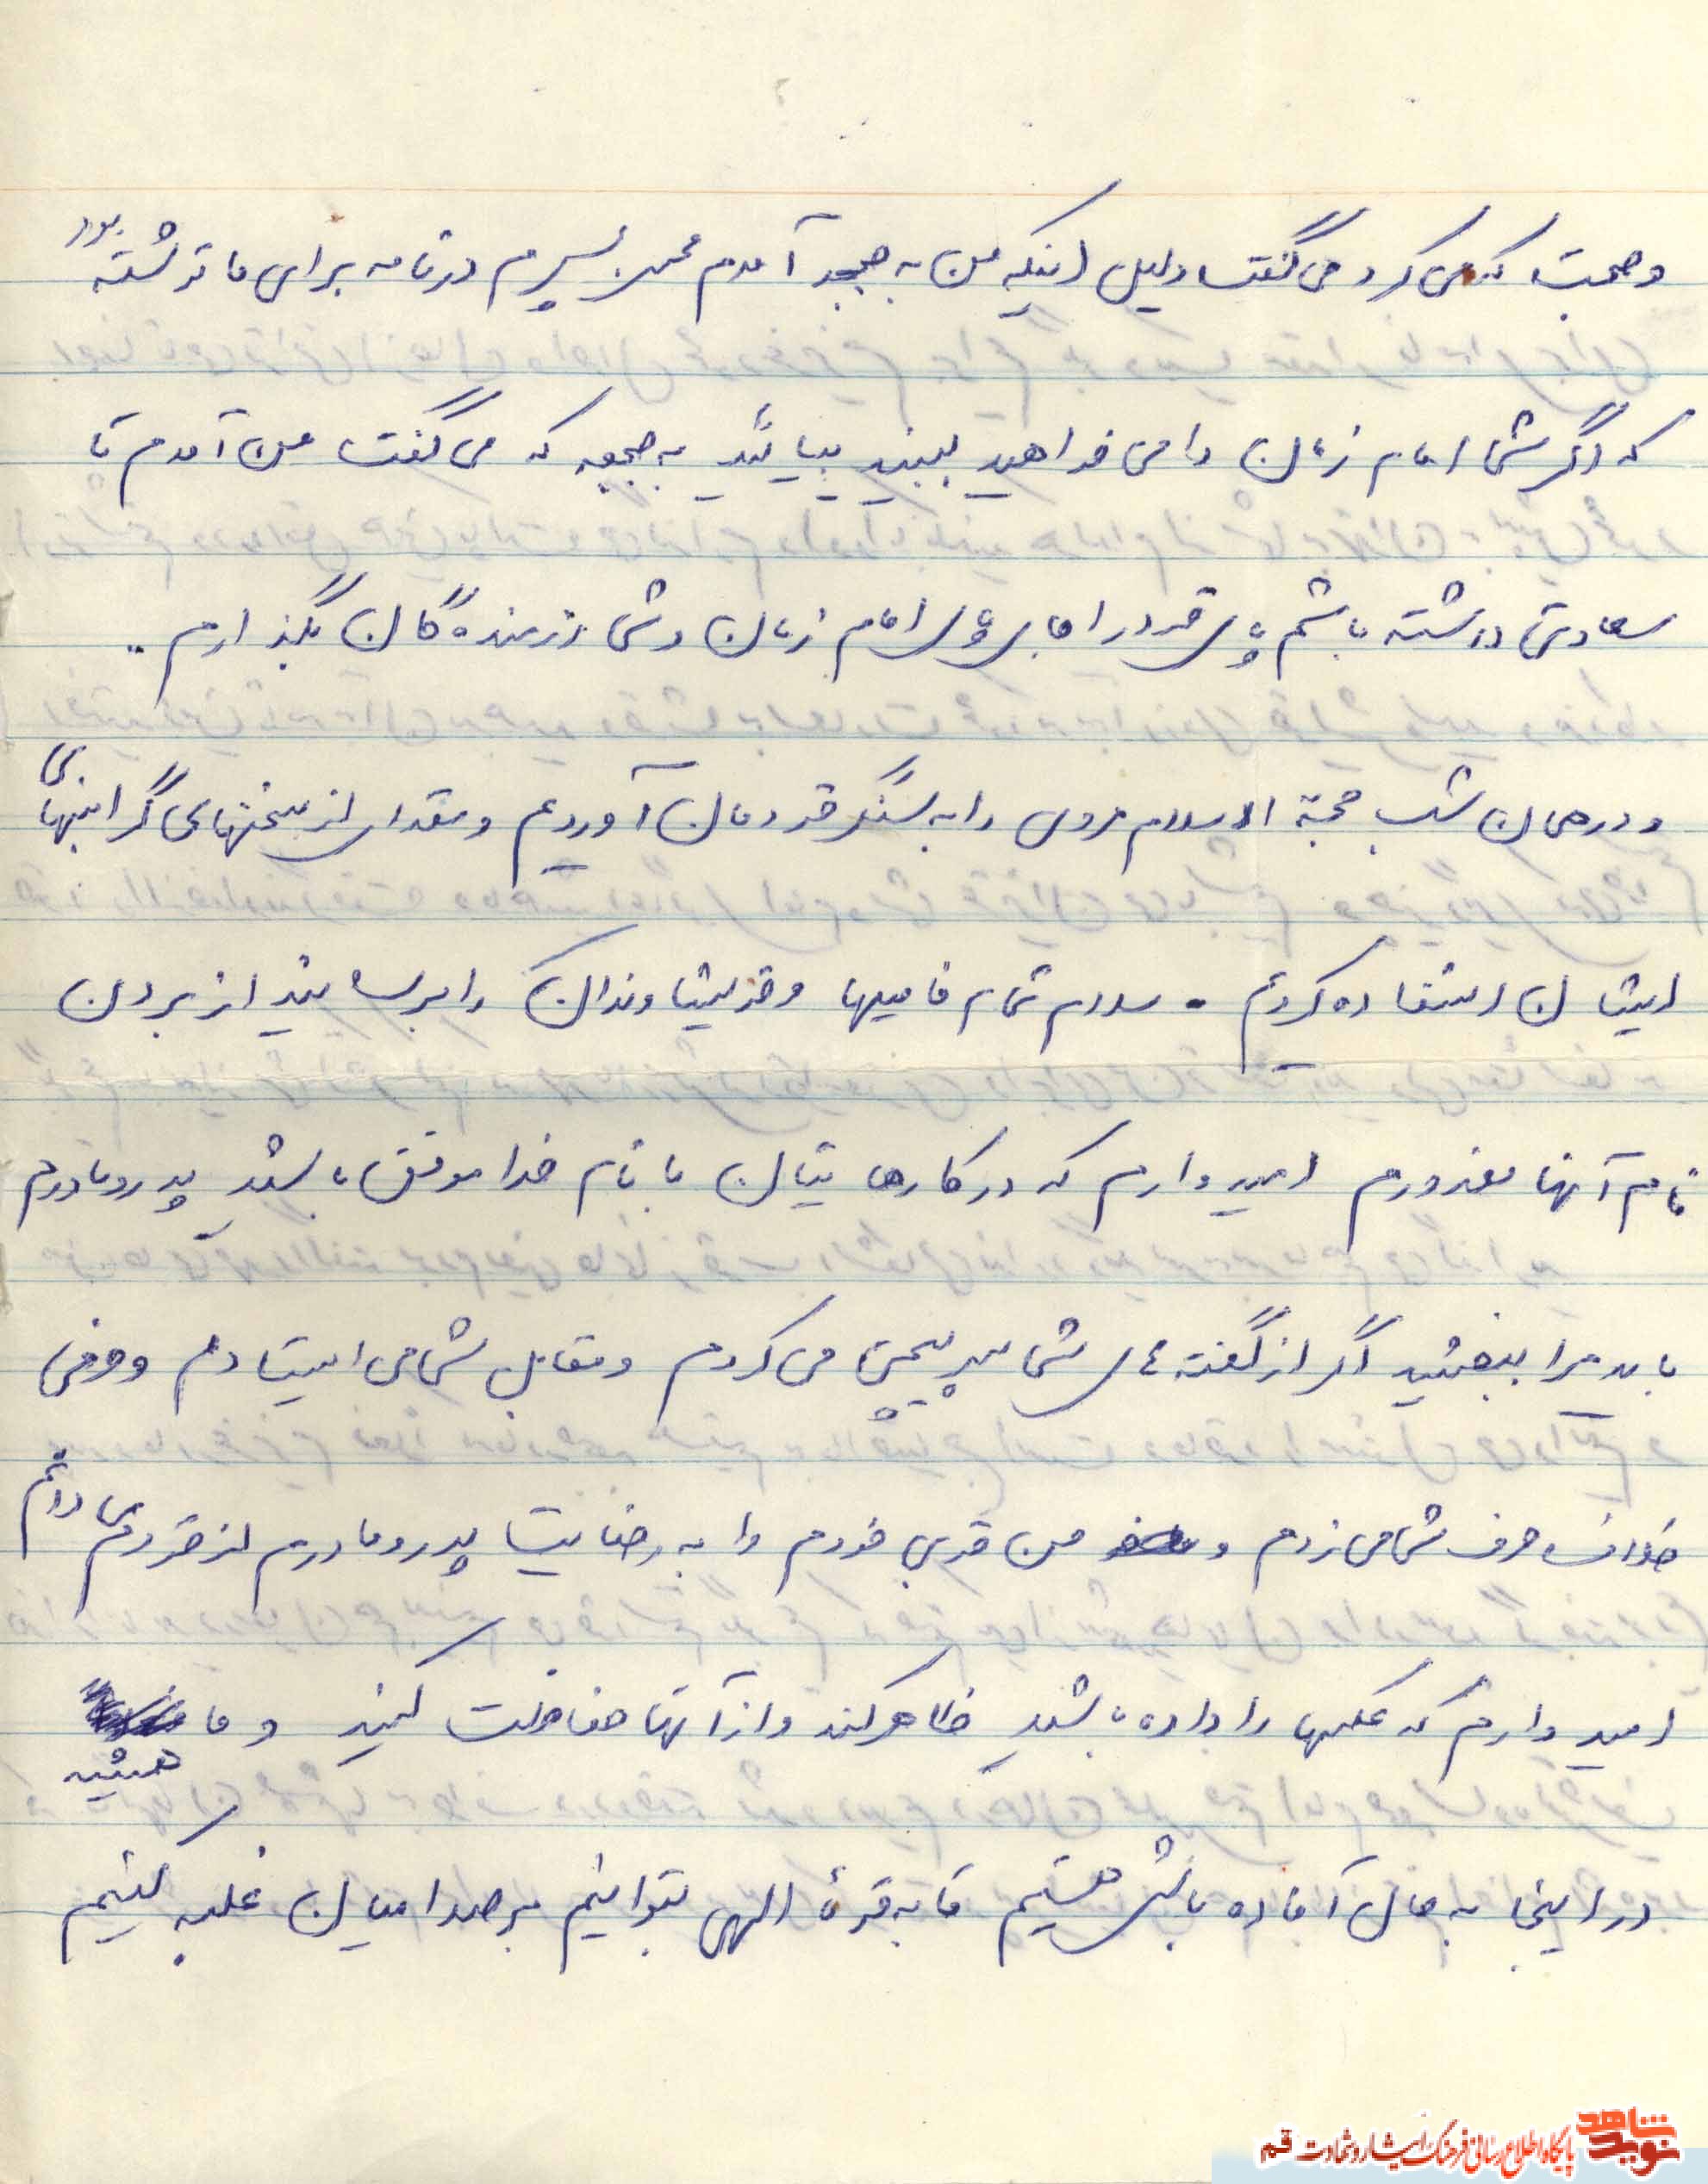 وصحبت که می کرد می گفت دلیل اینکه من به جبهه آمدم پسرم در نامه برای ما نوشته بود
که اگر شما امام زمان را می خواهید ببینید بیائید به جبهه که می گفت من آمدم تا
سعادتی داشته باشم سر خود را پای امام زمان و شما رزمندهگان بگذارم ..
و در همان شب حجة الاسلام مروی را به سنگر خودمان آوردیم و مقداری از سخنهای گرانبهای
ایشان استفاده کردیم . سلام تمام فامیلها و خویشاوندان را برسانید از بردن
نام آنها معذورم امیدوارم که در کارهایتان با نام خدا موفق باشید پدر و مادرم
باید مرا ببخشید اگر از گفته های شما سرپیچی می کردم و مقابل شما می ایستادم و حرفی
خلاف حرف شما می زدم و من خوبی خودم را به رضایت پدر و مادرم از خود می دانم
امید وارم که عکسها را داده باشید ظاهر کند و از آنها حفاظت کنید و ما همیشه
در اینجا به حال آماده باش هستیم تا به قوهٔ الهی بتوانیم بر صدامیان غلبه کنیم
شاهد نوید
پایگاه اطلاع رسانی فرهنگ ایثار و شهادت قم